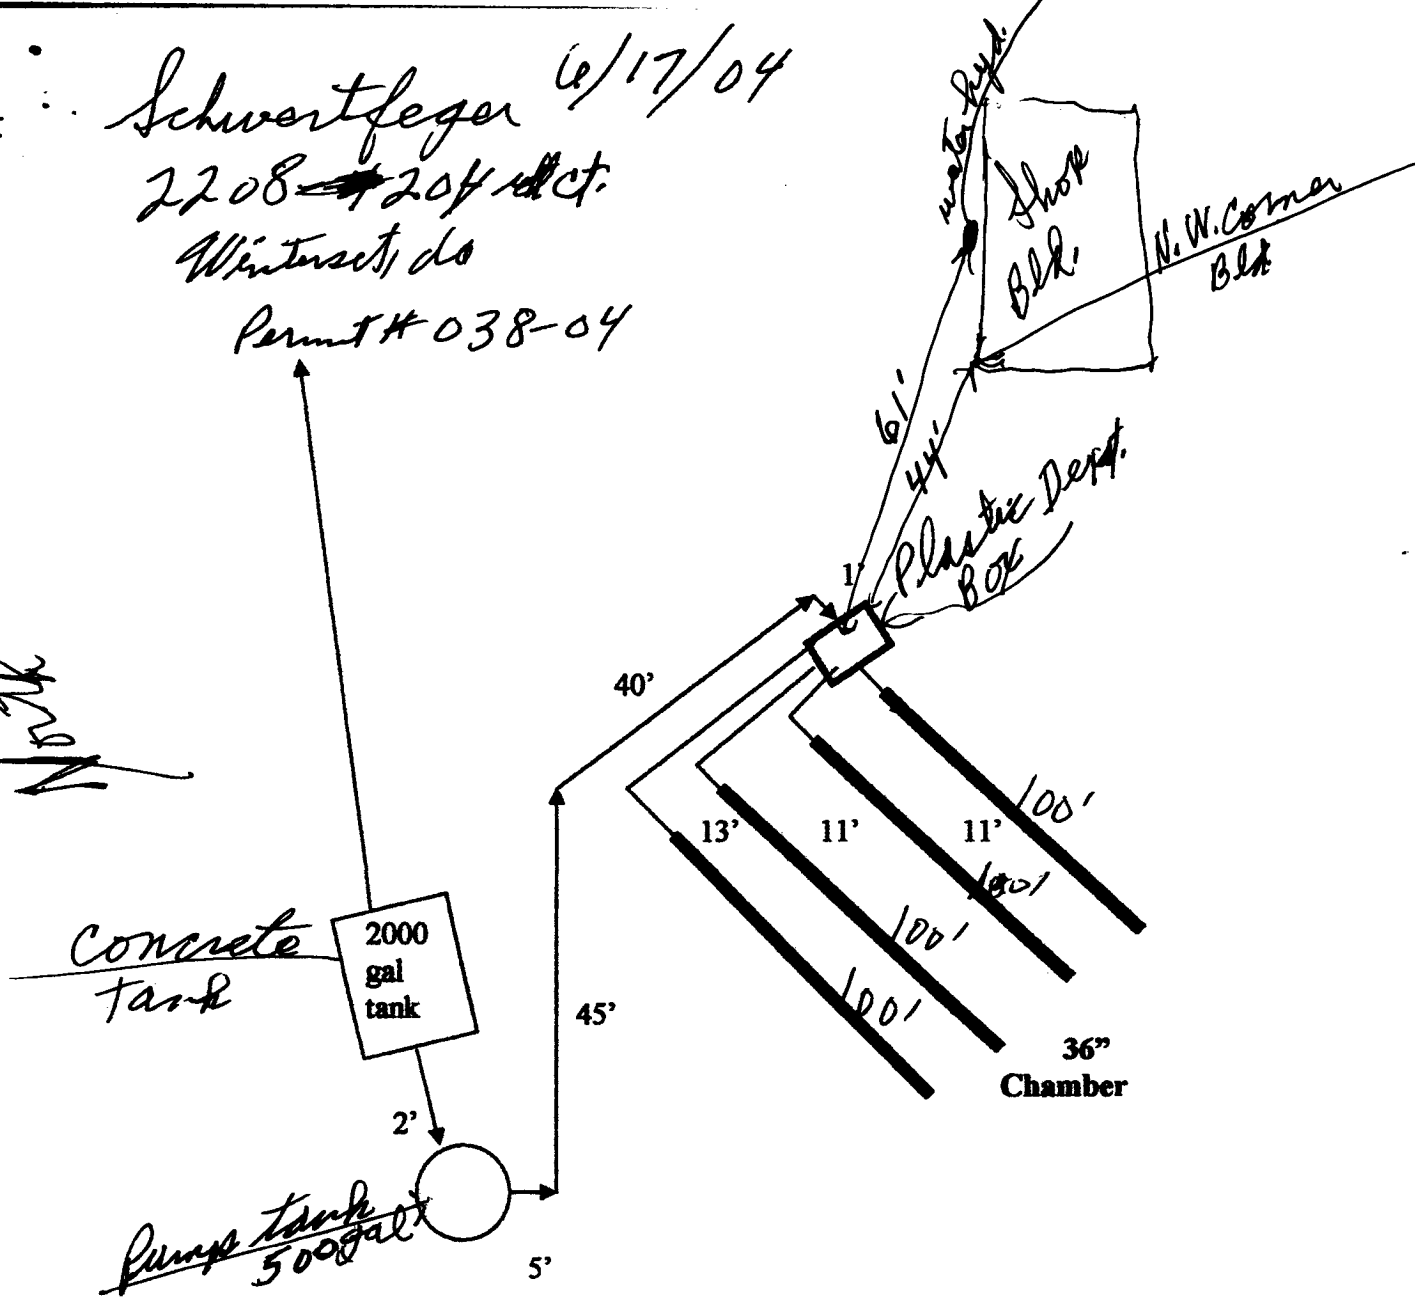 Schwartfeger 6/17/04
2208 204 ct.
Winterset, Ia
Permit # 038-04
water hyd.
Shop
Bld.
N.W. Corner
Bld.
61'
44'
Plastic Dept.
Box
1'
40'
North
13'
11'
11'
100'
100'
100'
100'
Concrete
Tank
2000
gal
tank
45'
36”
Chamber
2'
Pump tank
500 gal
5'